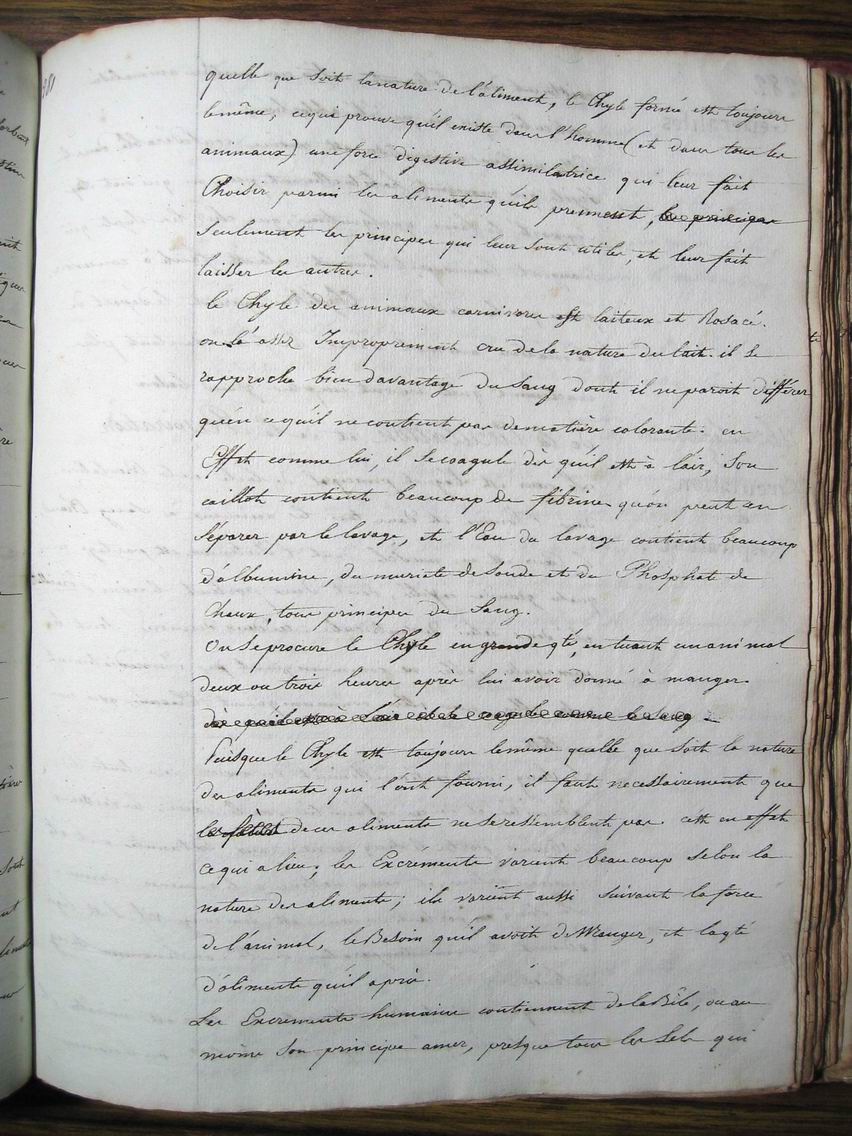 281
quelle que soit lanature de l'aliment, le Chyle formé est toujours
lemême, cequi prouve qu'il existe dans l'homme (et dans tous les
animaux) une force digestive assimilatrice qui leur fait
Choisir parmi les aliments qu'ils prennent, les principes
seulement les principes qui leur sont utiles, et leur fait
laisser les autres.
le Chyle des animaux carnivores est laiteux et Rosacé.
on l'a assez Improprement cru de la nature du lait. il se
rapproche bien davantage du sang dont il ne paroit différer
qu'en cequ'il necontient pas dematière colorante. en
Effet comme lui, il secoagule dès qu'il est à l'air, son
caillot contient beaucoup de fibrine qu'on peut en
séparer par le lavage, et l'Eau du lavage contient beaucoup
d'albumine, du muriate de soude et du Phosphate de
Chaux, tous principes du sang.
On seprocure le Chyle en grande qté, en tuant un animal
deux ou trois heures après lui avoir donné à manger
dès qu'il est à l'air il se coagule comme le sang
Puisque le Chyle est toujours lemême quelle que soit la nature
des aliments qui l'ont fourni, il faut necessairement que
de ces aliments ne se ressemblent pas. c'est en effet
cequi a lieu; les Excréments varient beaucoup selon la
nature des aliments; ils varient aussi suivant la force
de l'animal, le Besoin qu'il avoit de Manger, et la qté
d'aliments qu'il a pris.
Les Excrements humains contiennent de la Bile, ou au
moins son principe amer, presque tous les sels qui